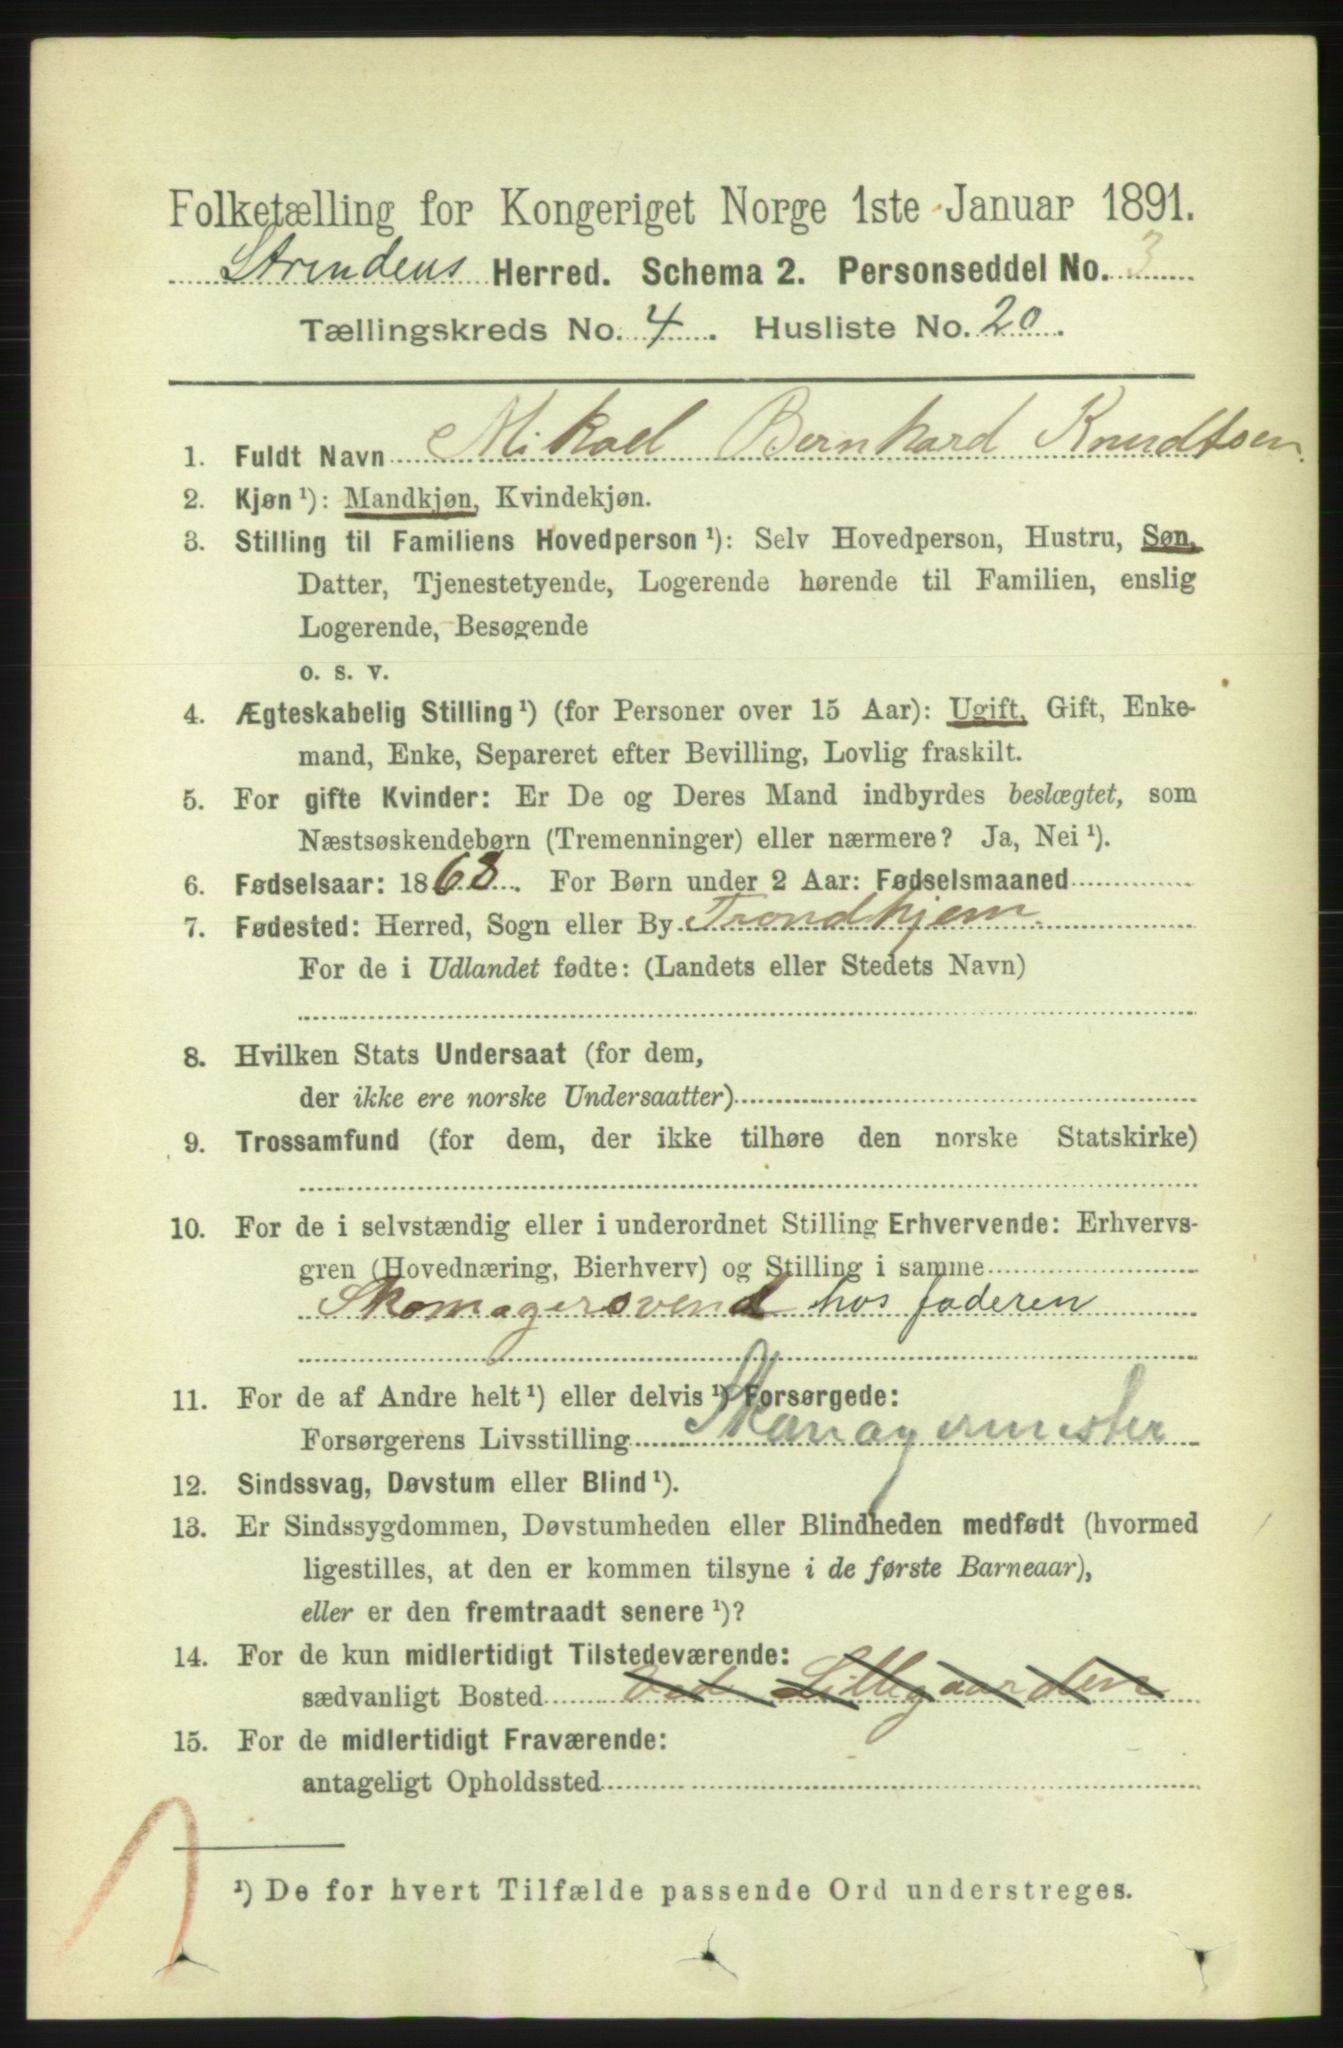 Folketælling for Kongeriget Norge 1ste Januar 1891.
Strindens Herred. Schema 2. Personseddel No. 3
Tællingskreds No. 4. Husliste No. 20.
1. Fuldt Navn Mikael Bernhard Knudtsen
2. Kjøn ¹): Mandkjøn, Kvindekjøn.
3. Stilling til Familiens Hovedperson ¹): Selv Hovedperson, Hustru, Søn,
Datter, Tjenestetyende, Logerende hørende til Familien, enslig
Logerende, Besøgende
o. s. v.
4. Ægteskabelig Stilling ¹) (for Personer over 15 Aar): Ugift, Gift, Enke-
mand, Enke, Separeret efter Bevilling, Lovlig fraskilt.
5. For gifte Kvinder: Er De og Deres Mand indbyrdes beslægtet, som
Næstsøskendebørn (Tremenninger) eller nærmere? Ja, Nei ¹).
6. Fødselsaar: 1868. For Børn under 2 Aar: Fødselsmaaned
7. Fødested: Herred, Sogn eller By Trondhjem.
For de i Udlandet fødte: (Landets eller Stedets Navn)
8. Hvilken Stats Undersaat (for dem,
der ikke ere norske Undersaatter)
9. Trossamfund (for dem, der ikke tilhøre den norske Statskirke)
10. For de i selvstændig eller i underordnet Stilling Erhvervende: Erhvervs-
gren (Hovednæring, Bierhverv) og Stilling i samme
Skomagersvend hos faderen
11. For de af Andre helt ¹) eller delvis ¹) Forsørgede:
Forsørgerens Livsstilling Skomagermester
12. Sindssvag, Døvstum eller Blind ¹).
13. Er Sindssygdommen, Døvstumheden eller Blindheden medfødt (hvormed
ligestilles, at den er kommen tilsyne i de første Barneaar),
eller er den fremtraadt senere ¹)?
14. For de kun midlertidigt Tilstedeværende:
sædvanligt Bosted ved Lillegaarden
15. For de midlertidigt Fraværende:
antageligt Opholdssted
¹) De for hvert Tilfælde passende Ord understreges.